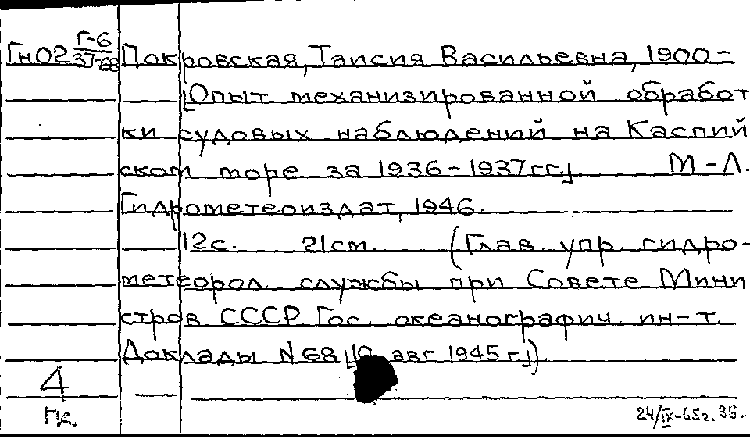 Г-6
Гн02 37-28 Покровская, Таисия Васильевна, 1900-
[Опыт механизированной обработ
ки судовых наблюдений на Каспий
ском море за 1936-1937гг.] М-Л.
Гидрометеоиздат, 1946.
12с. 21см. (Глав. упр. гидро-
метеорол. службы при Совете Мини
стров СССР. Гос. океанографич. ин-т.
Доклады N 68 авг 1945 г.])
4
24/IX-65г. 35.